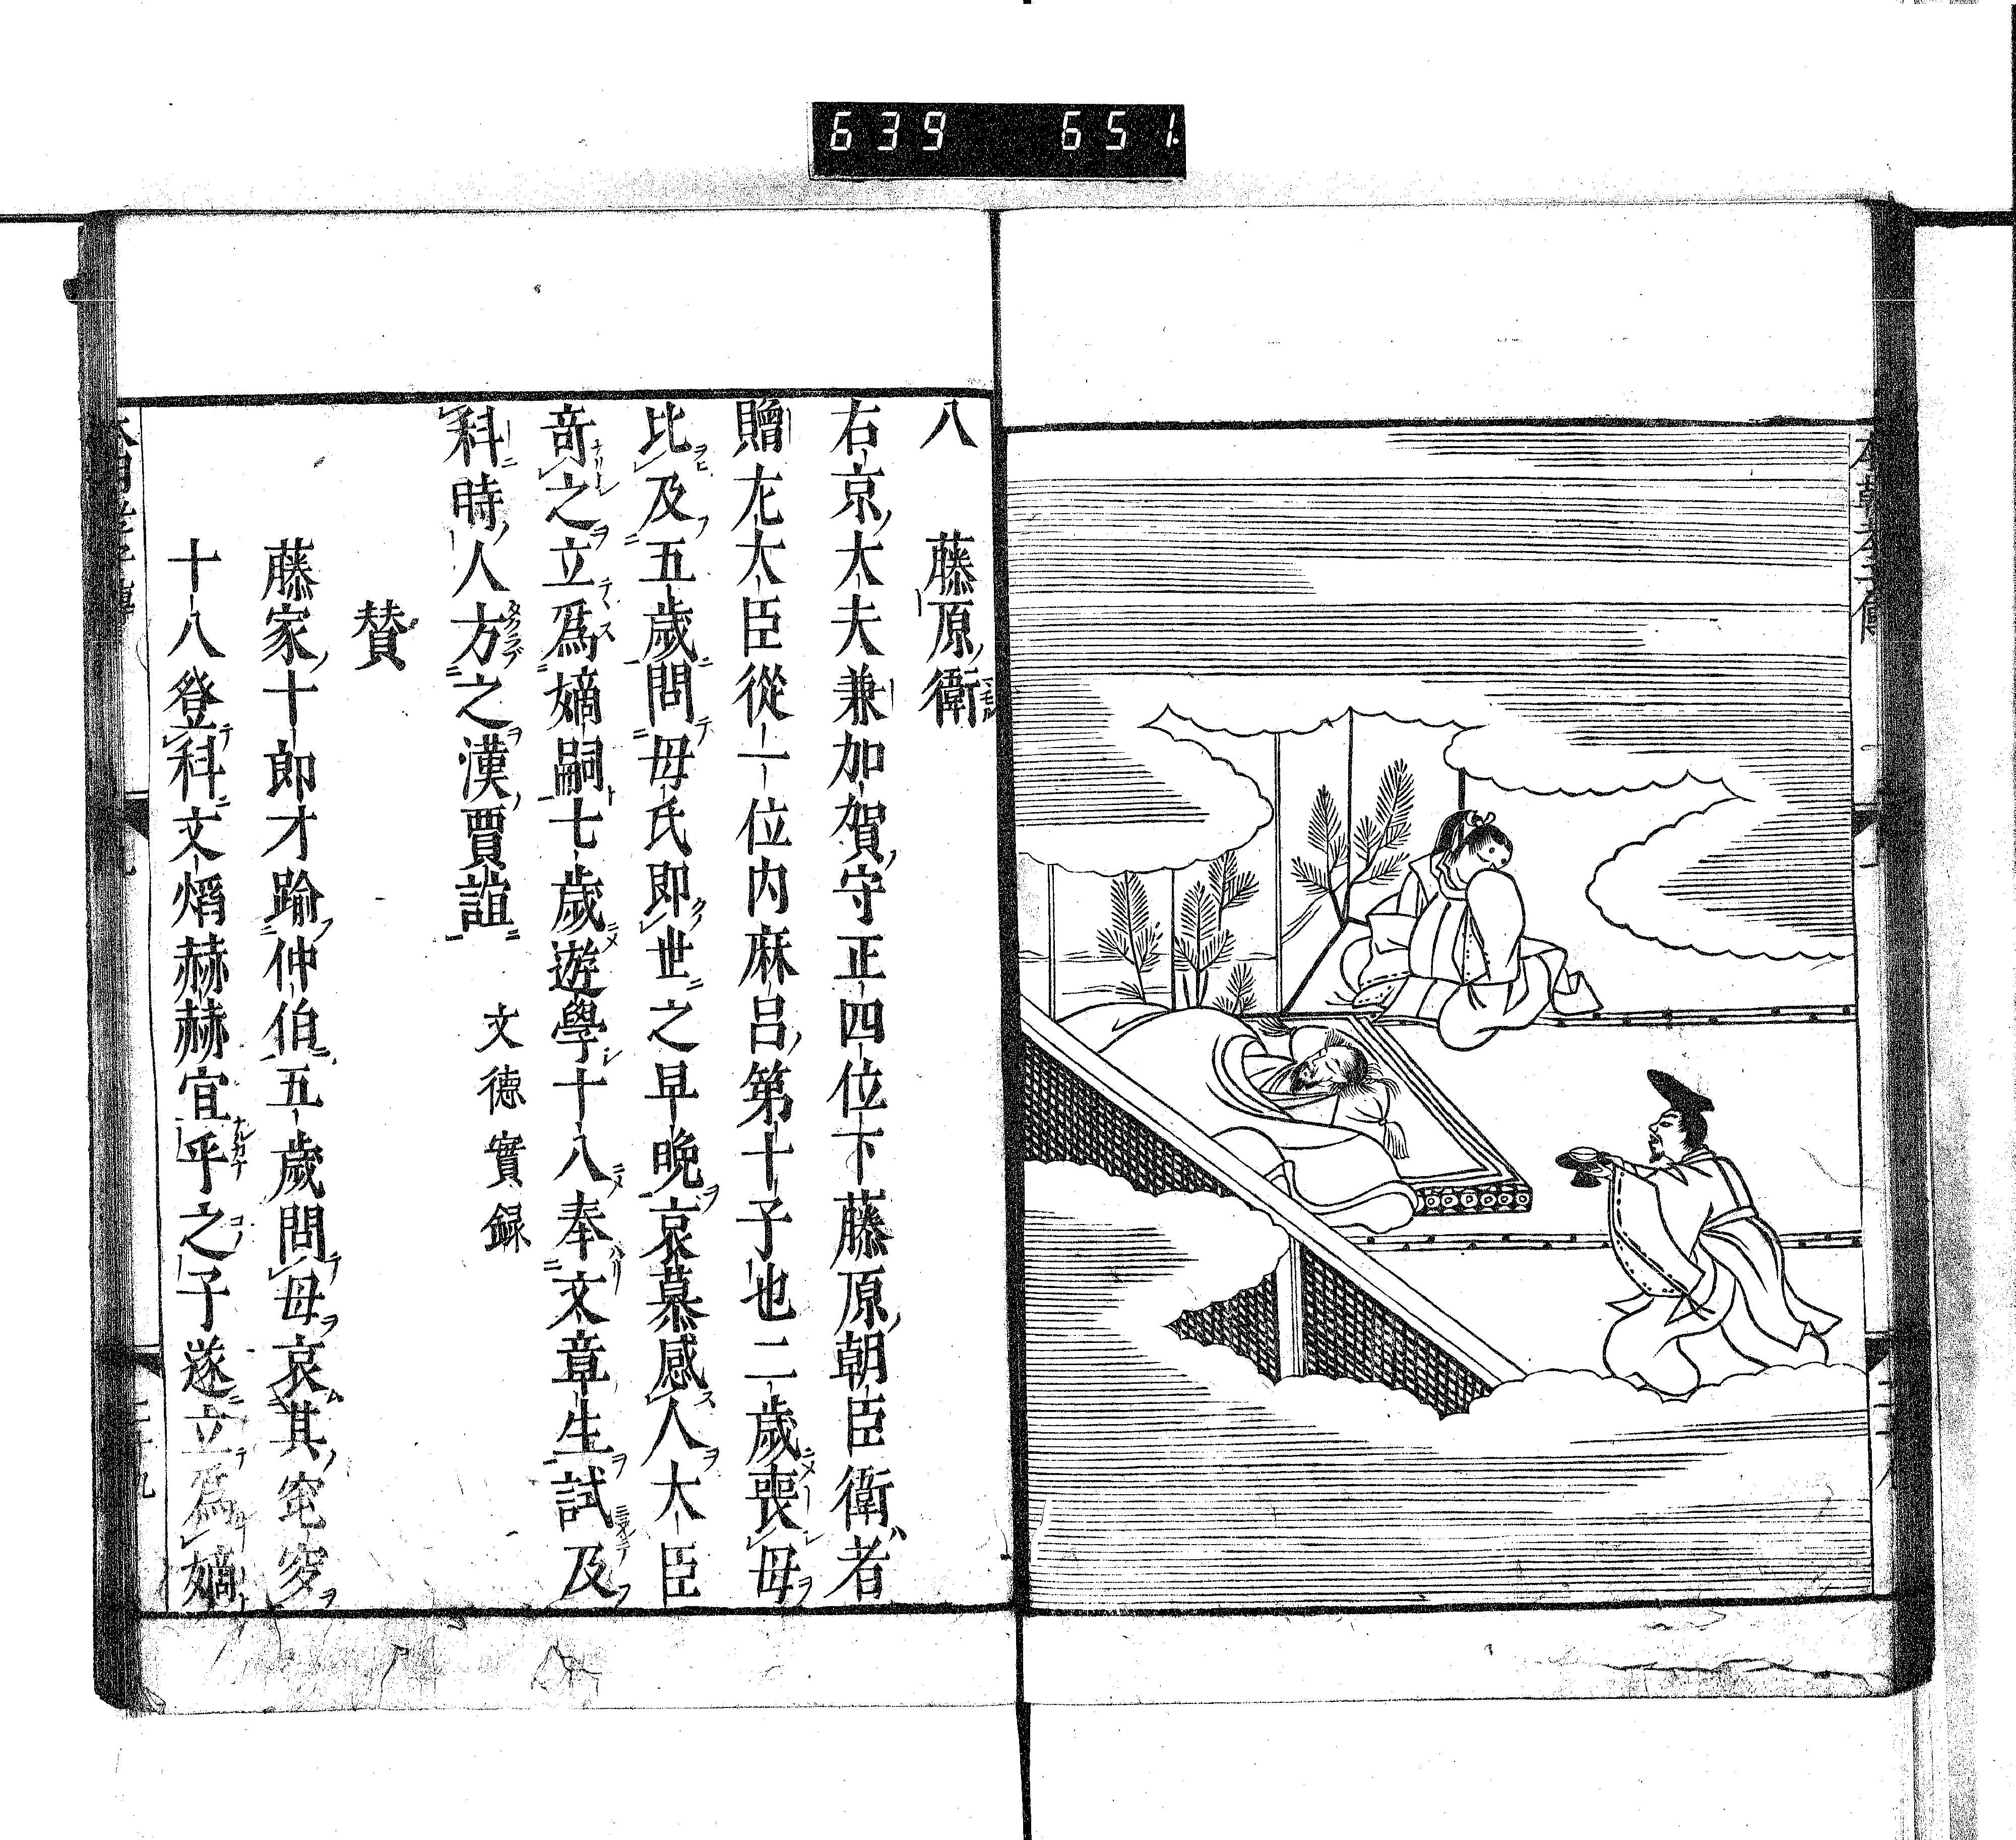 639 651
八 藤原衛
右京大夫兼加賀守正四位下藤原朝臣衛者
贈左大臣從一位内麻呂第十子也二歲喪母
比及五歲問母氏即世之早晩哀慕感人大臣
奇之立爲嫡嗣七歲遊學十八奉文章生試及
科時人方之漢賈誼 文德實録
賛
藤家十郎才踰仲伯五歲問母哀其窀穸
十八登科文熖赫赫宜乎之子遂立爲嫡